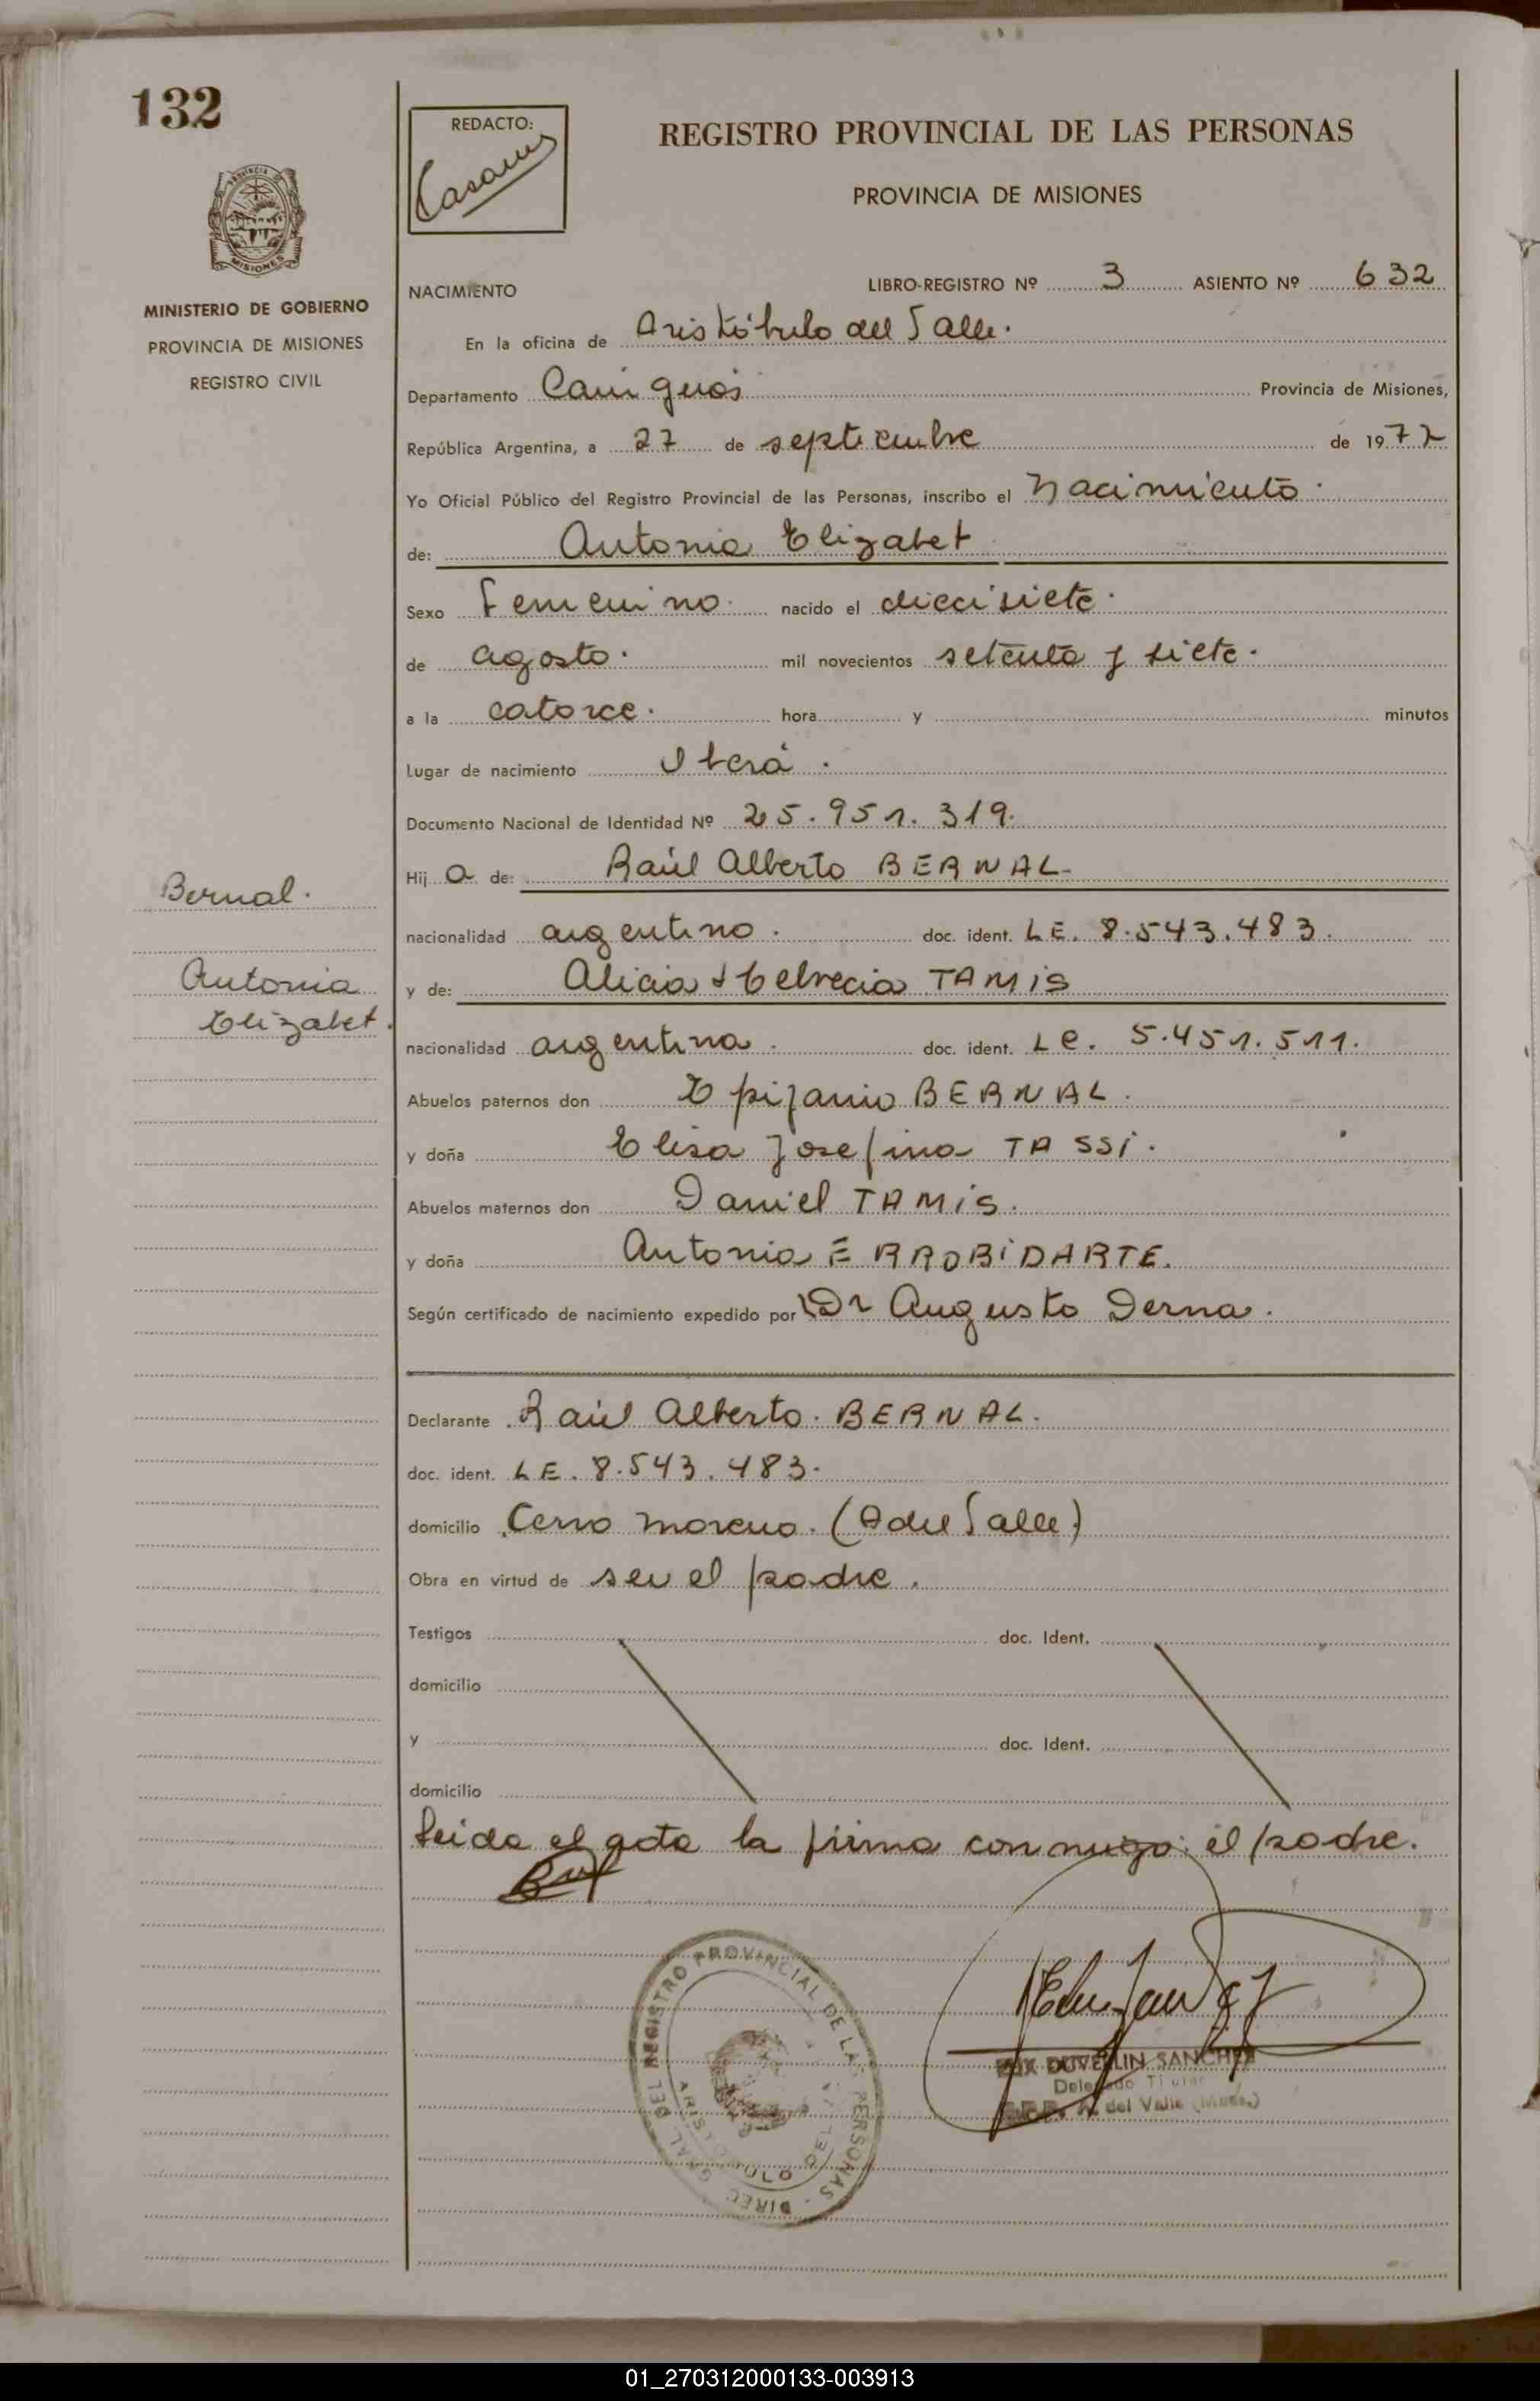 132
REDACTO:
REGISTRO PROVINCIAL DE LAS PERSONAS
PROVINCIA DE MISIONES
MINISTERIO DE GOBIERNO
PROVINCIA DE MISIONES
REGISTRO CIVIL
NACIMIENTO LIBRO-REGISTRO Nº 3 ASIENTO Nº 632
En la oficina de Aristóbulo del Valle.
Departamento Cainguás Provincia de Misiones,
República Argentina, a 27 de septiembre de 1977
Yo Oficial Público del Registro Provincial de las Personas, inscribo el Nacimiento.
de: Antonia Elizabet
Sexo Femenino. nacido el diecisiete.
de agosto. mil novecientos setenta y siete.
a la catorce. hora y minutos
Lugar de nacimiento Oberá.
Documento Nacional de Identidad Nº 25.951.319.
Hij a de: Raúl Alberto BERNAL-
nacionalidad argentino. doc. ident. LE. 8.543.483.
y de: Alicia Helvecia TAMIS
nacionalidad argentina. doc. ident. LC. 5.451.511.
Abuelos paternos don Epifanio BERNAL.
y doña Elisa Josefina TASSI.
Abuelos maternos don Daniel TAMIS.
y doña Antonia ERROBIDARTE.
Según certificado de nacimiento expedido por Dr Augusto Derna.
Bernal.
Antonia
Elizabet.
Declarante Raúl Alberto. BERNAL.
doc. ident. LE. 8.543.483.
domicilio Cerro Moreno. (A del Valle)
Obra en virtud de ser el padre.
Testigos doc. Ident.
domicilio
y doc. Ident.
domicilio
Leida el acta la firma conmigo: el padre.
REGISTRO PROVINCIAL DE LAS PERSONAS - DIREC. GRAL. DEL
ARISTOBULO DEL
DUVERLIN SANCHEZ
Delegado Titular
A. del Valle (Mnes.)
01_270312000133-003913